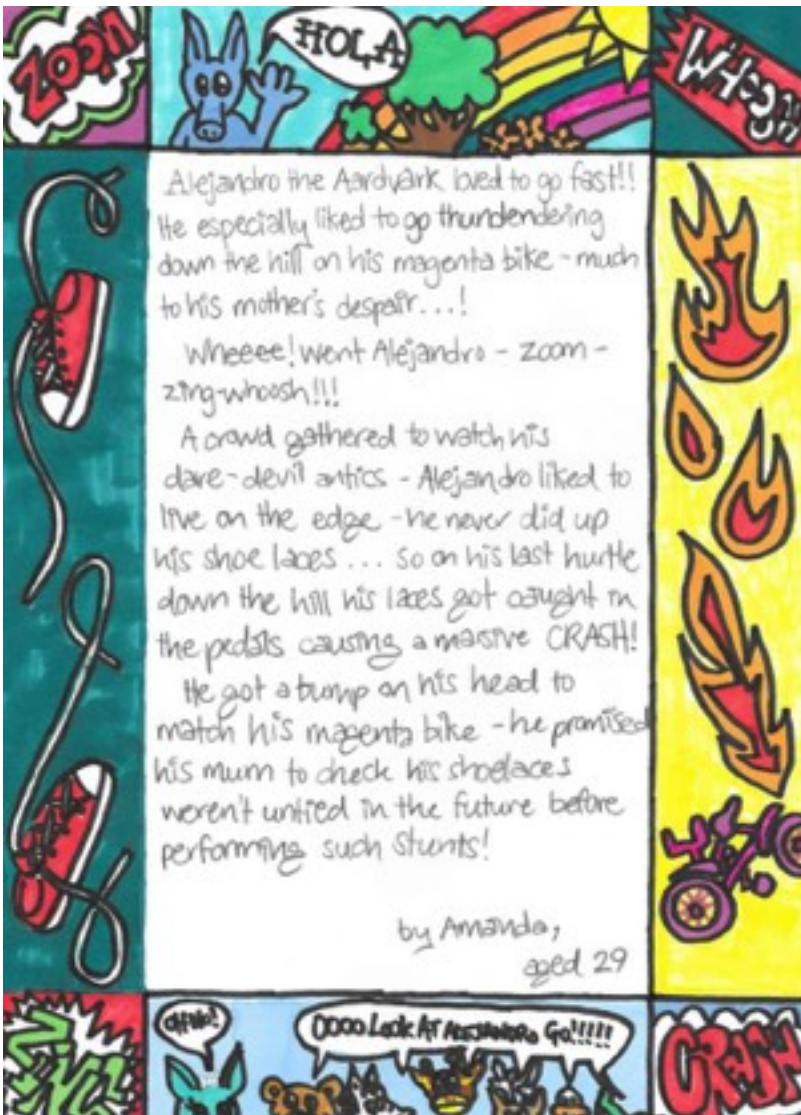 ZOOM
HOLA
WHOOSH
Alejandro the Aardvark loved to go fast!!
He especially liked to go thundendering
down the hill on his magenta bike - much
to his mother's despair...!
Wheeee! went Alejandro - zoom -
zing-whoosh!!!
A crowd gathered to watch his
dare-devil antics - Alejandro liked to
live on the edge - he never did up
his shoe laces ... so on his last hurtle
down the hill his laces got caught in
the pedals causing a massive CRASH!
He got a bump on his head to
match his magenta bike - he promised
his mum to check his shoelaces
weren't untied in the future before
performing such stunts!
by Amanda,
aged 29
ZING
OH NO!
OOOO LOOK AT ALEJANDRO GO!!!!!
CRASH